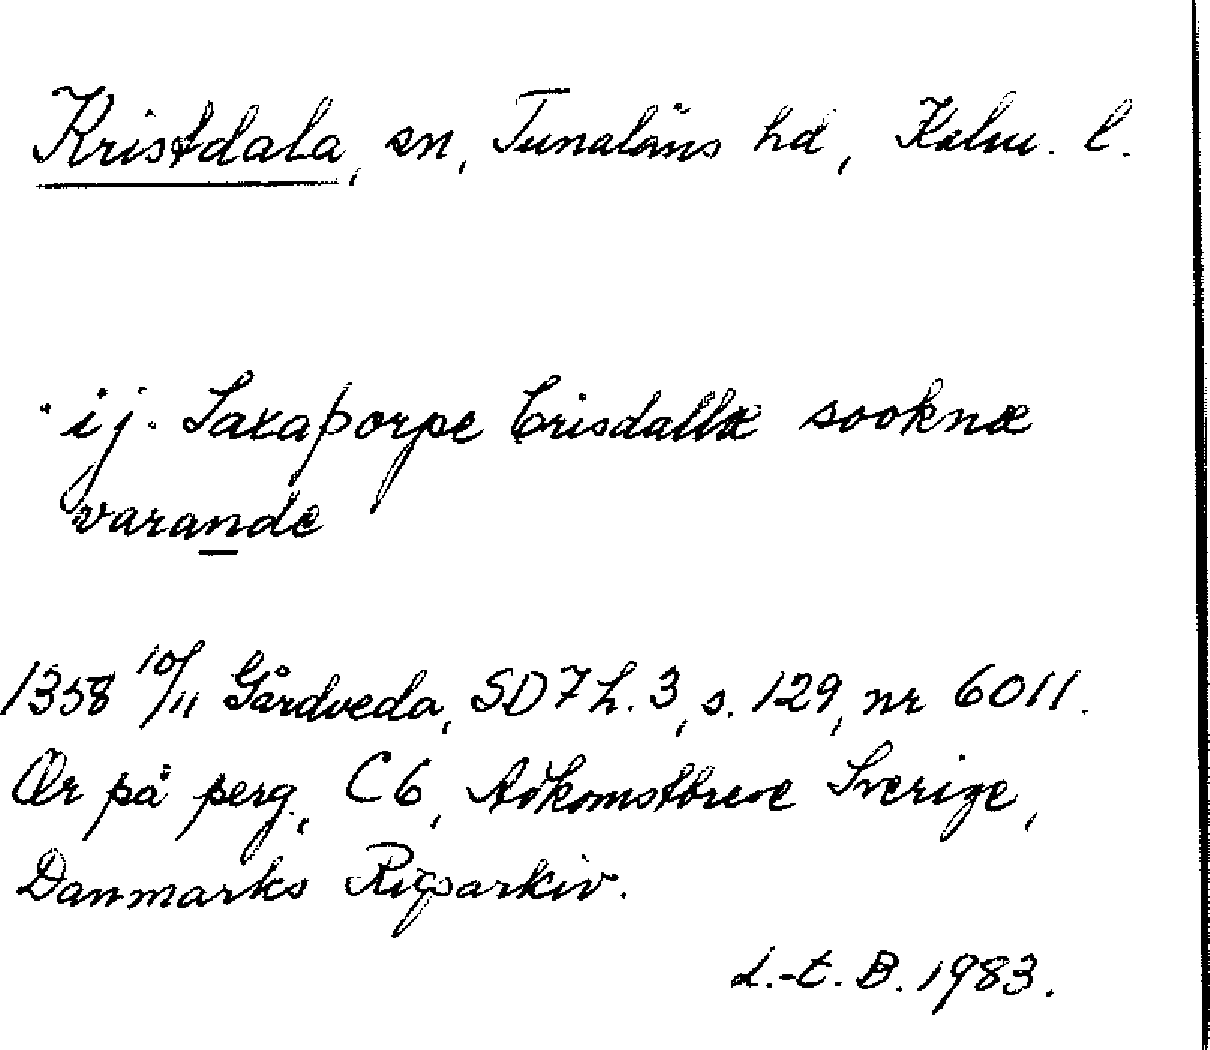 Kristdala, sn, Tunaläns hd, Kalm. l.
ij. Saxaþorpe Crisdallæ sooknæ
varande
1358 10/11 Gårdveda, SD 7 h. 3, s. 129, nr 6011.
Or på perg., C6, Adkomstbreve Sverige,
Danmarks Rigsarkiv.
L.-t. B. 1983.